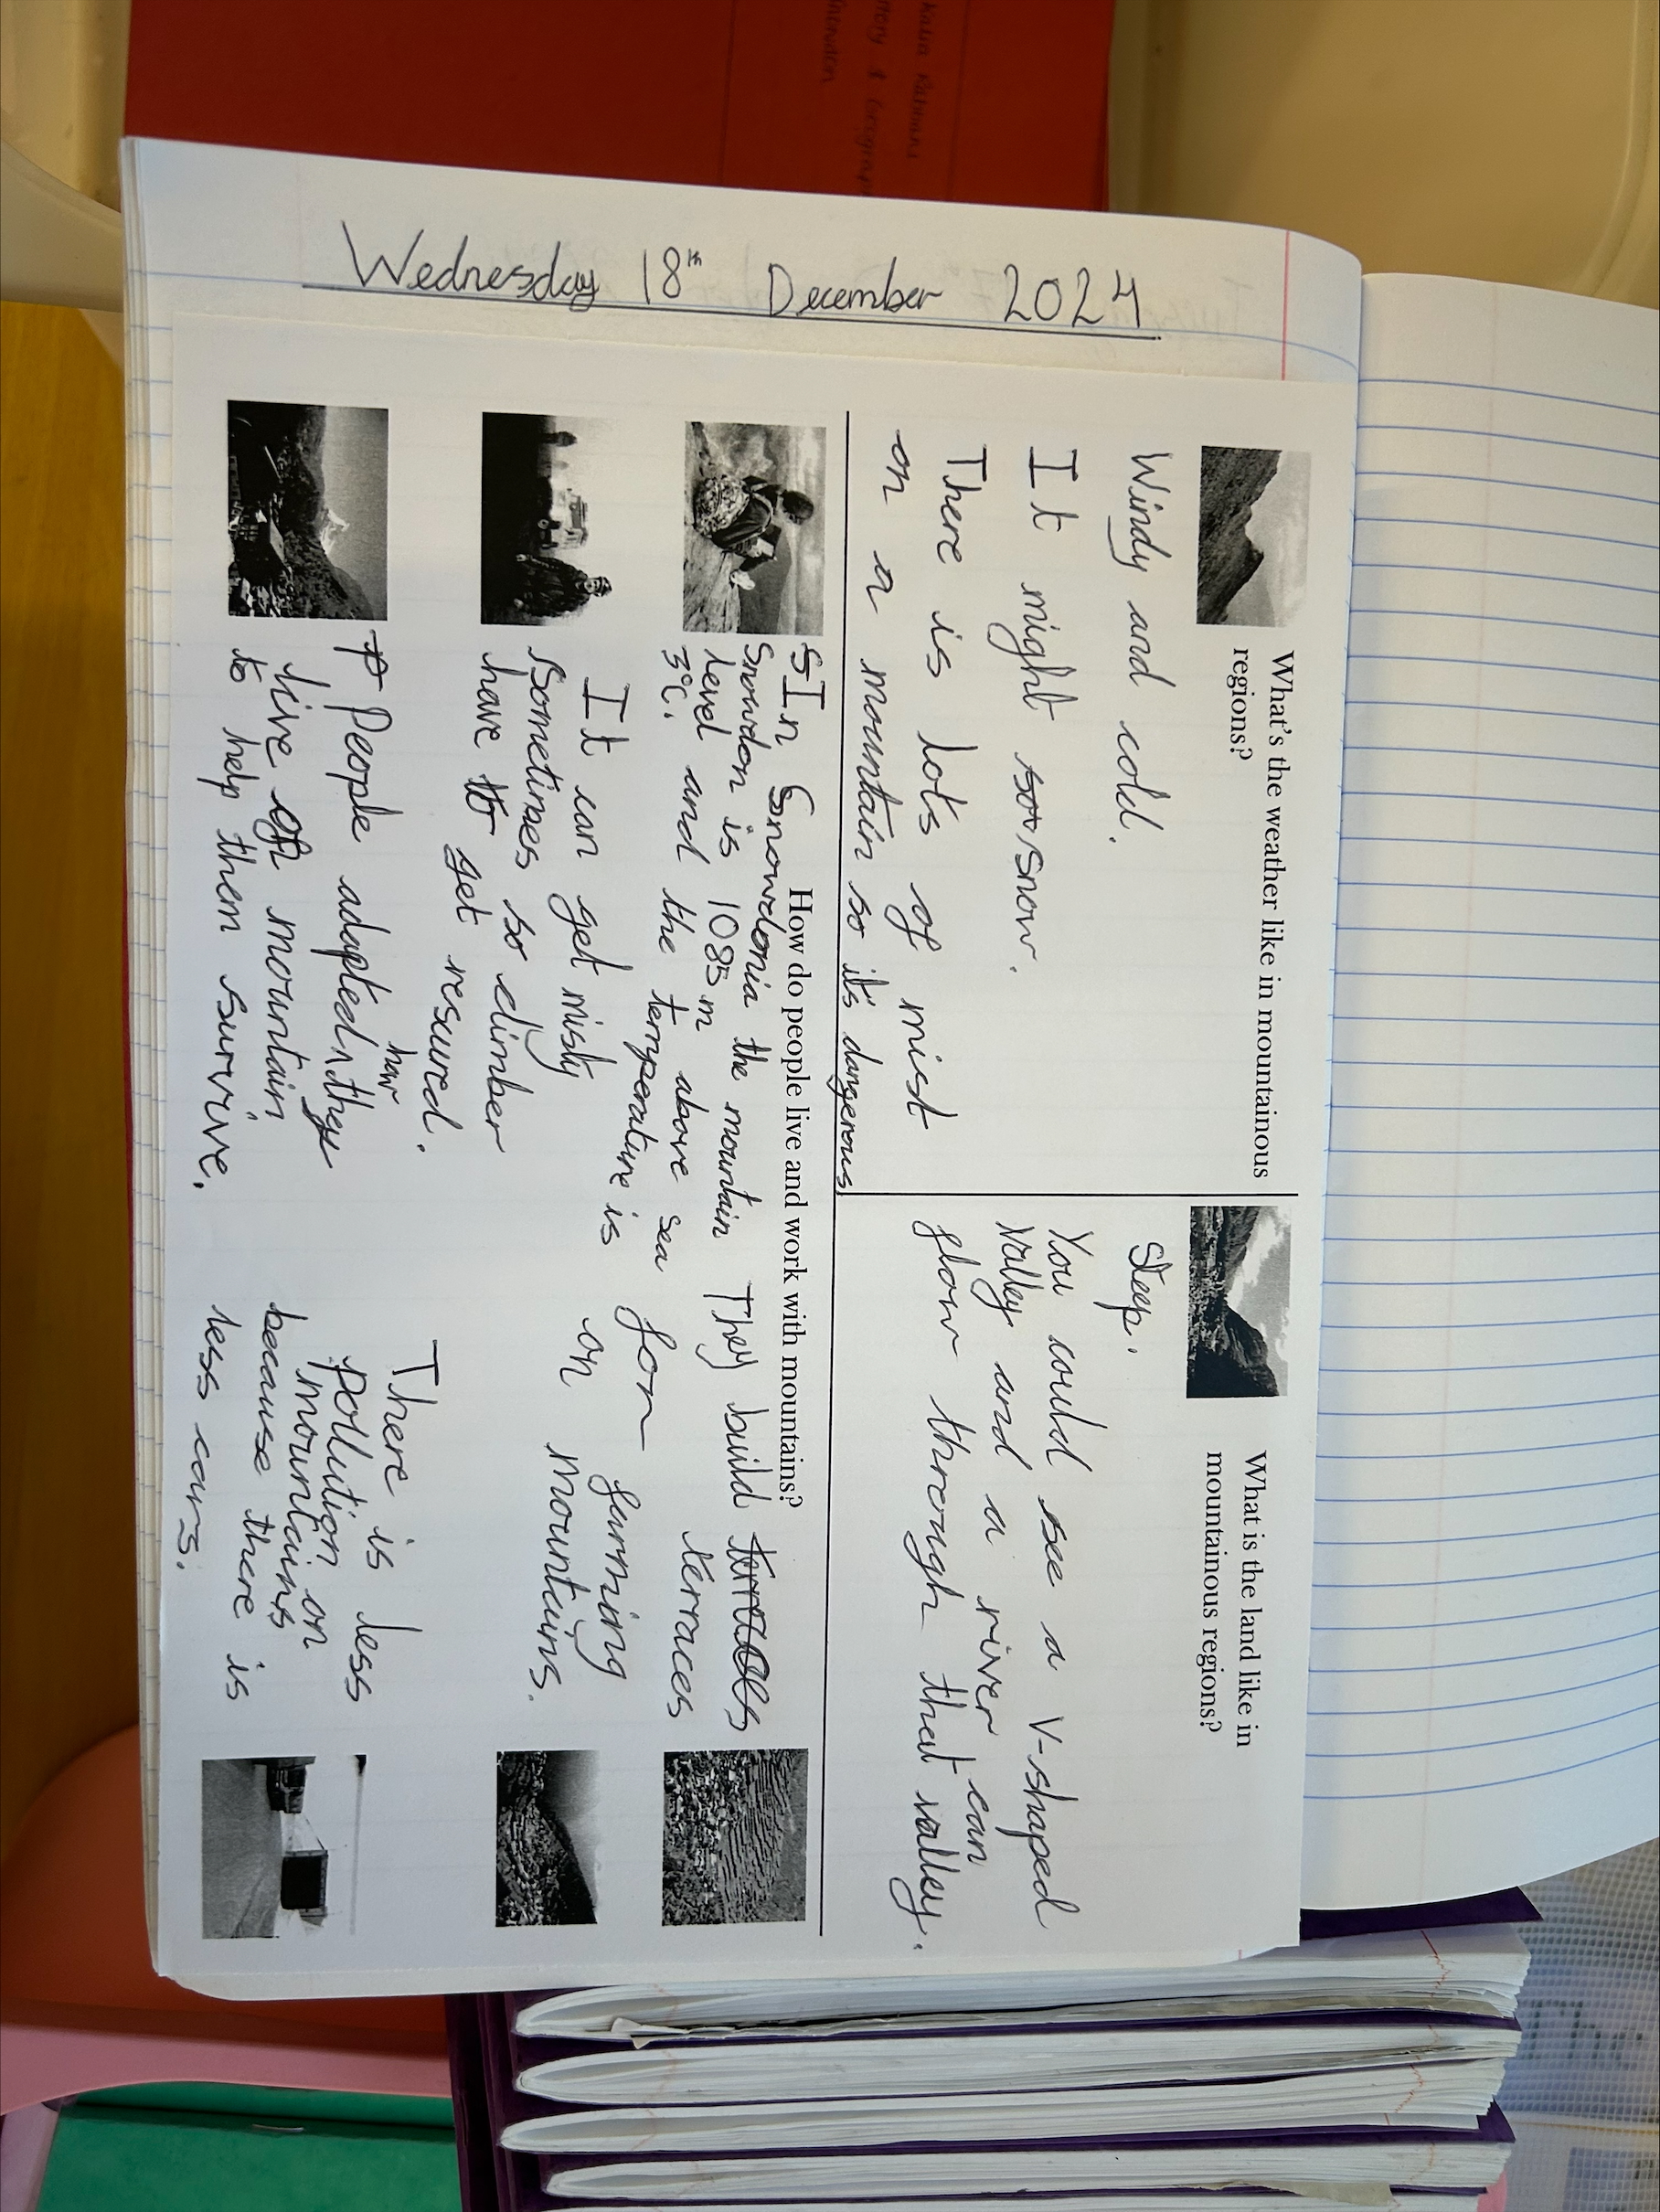 Wednesday 18th December 2024
What's the weather like in mountainous
regions?
Windy and cold.
It might snow.
There is lots of mist
on a mountain so it's dangerous
What is the land like in
mountainous regions?
Steep.
You could see a V-shaped
Valley and a river can
flow through that valley.
How do people live and work with mountains?
In Snowdonia the mountain
Snowdon is 1085m above sea
level and the temperature is
3°C.
It can get misty
Sometimes so climber
have to get resured.
People adapted how they
live of mountain
to help them survive.
They build terraces
terraces
for farming
on mountains.
There is less
pollution on
mountains
because there is
less cars.